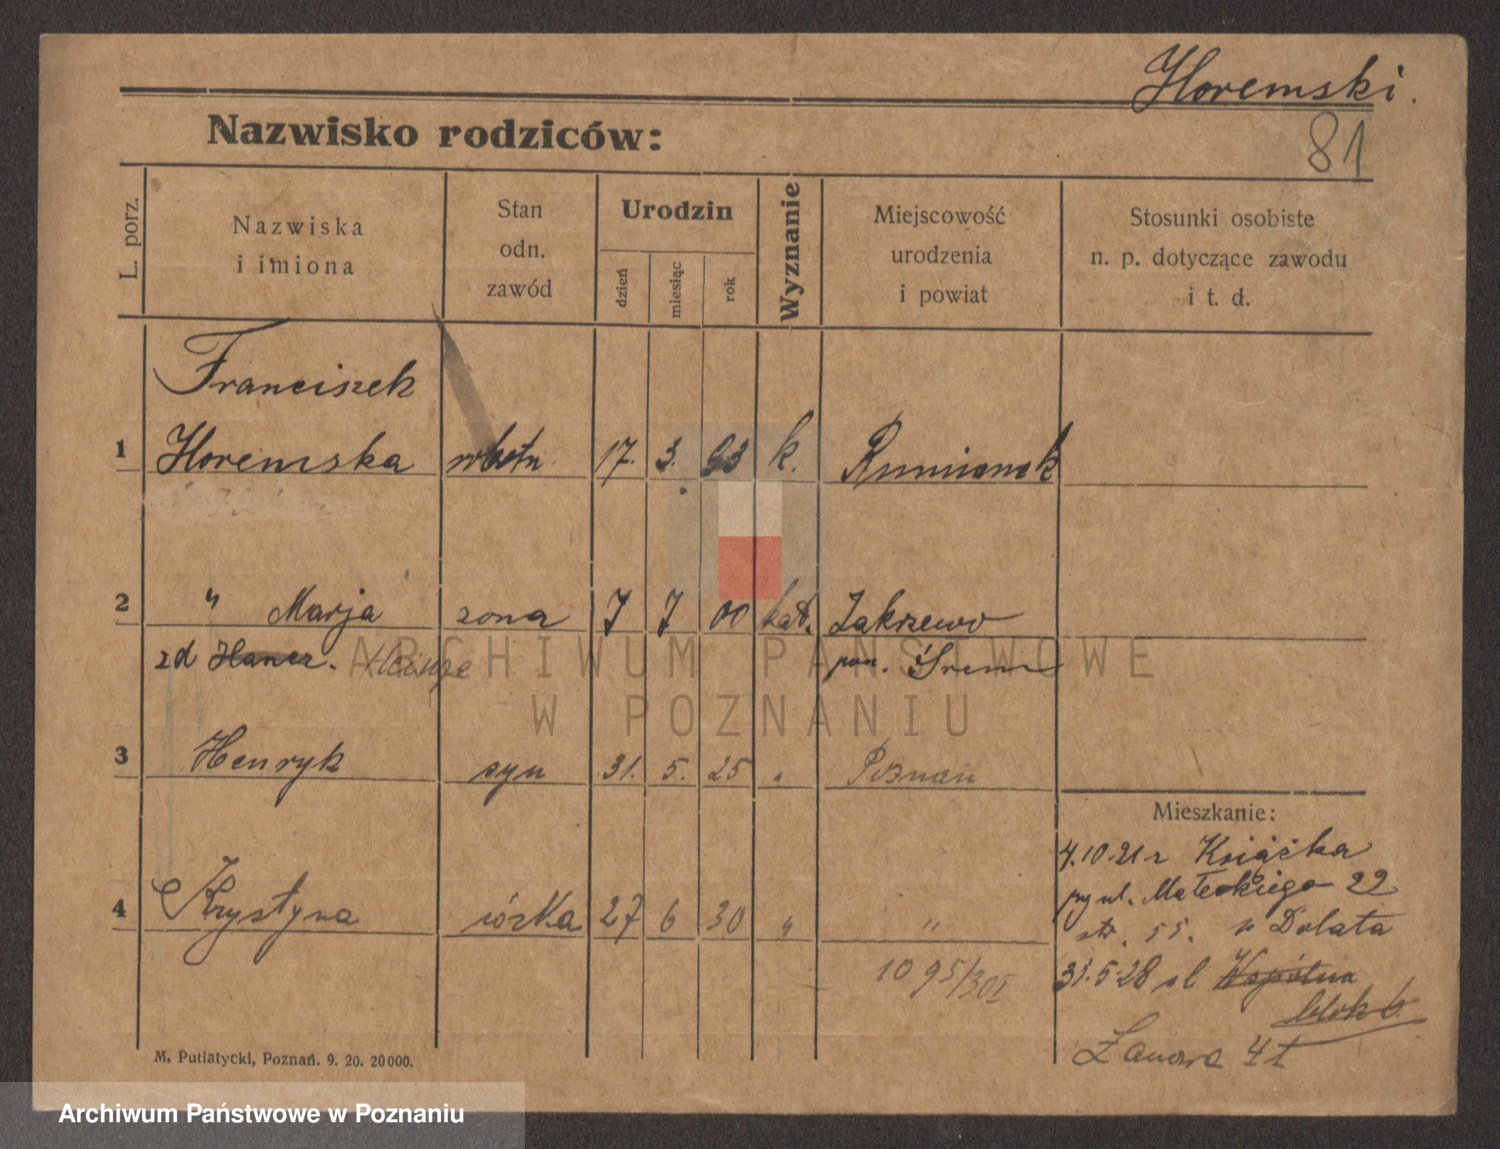 Horemski.
Nazwisko rodziców:
81
L. porz.
Nazwiska
i imiona
Stan
odn.
zawód
Urodzin
dzień
miesiąc
rok
Wyznanie
Miejscowość
urodzenia
i powiat
Stosunki osobiste
n. p. dotyczące zawodu
i t. d.
Franciszek
1 Horemska robotn. 17. 3. 93 k.
2 " Marja żona 7 7 00 kat. Zakrzewo
zd Hancz. pow. Śrem
3 Henryk syn 31. 5. 25 " Poznań
4 Krystyna córka 27 6 30 " "
10 95/30
Mieszkanie:
4.10.21 r Książka
przy ul. Małeckiego 22
str. 55. u Dolata
31.5.28 ul Wspólna
blok 6.
4t
M. Putiatycki, Poznań. 9. 20. 20000.
ARCHIWUM PAŃSTWOWE
W POZNANIU
Archiwum Państwowe w Poznaniu